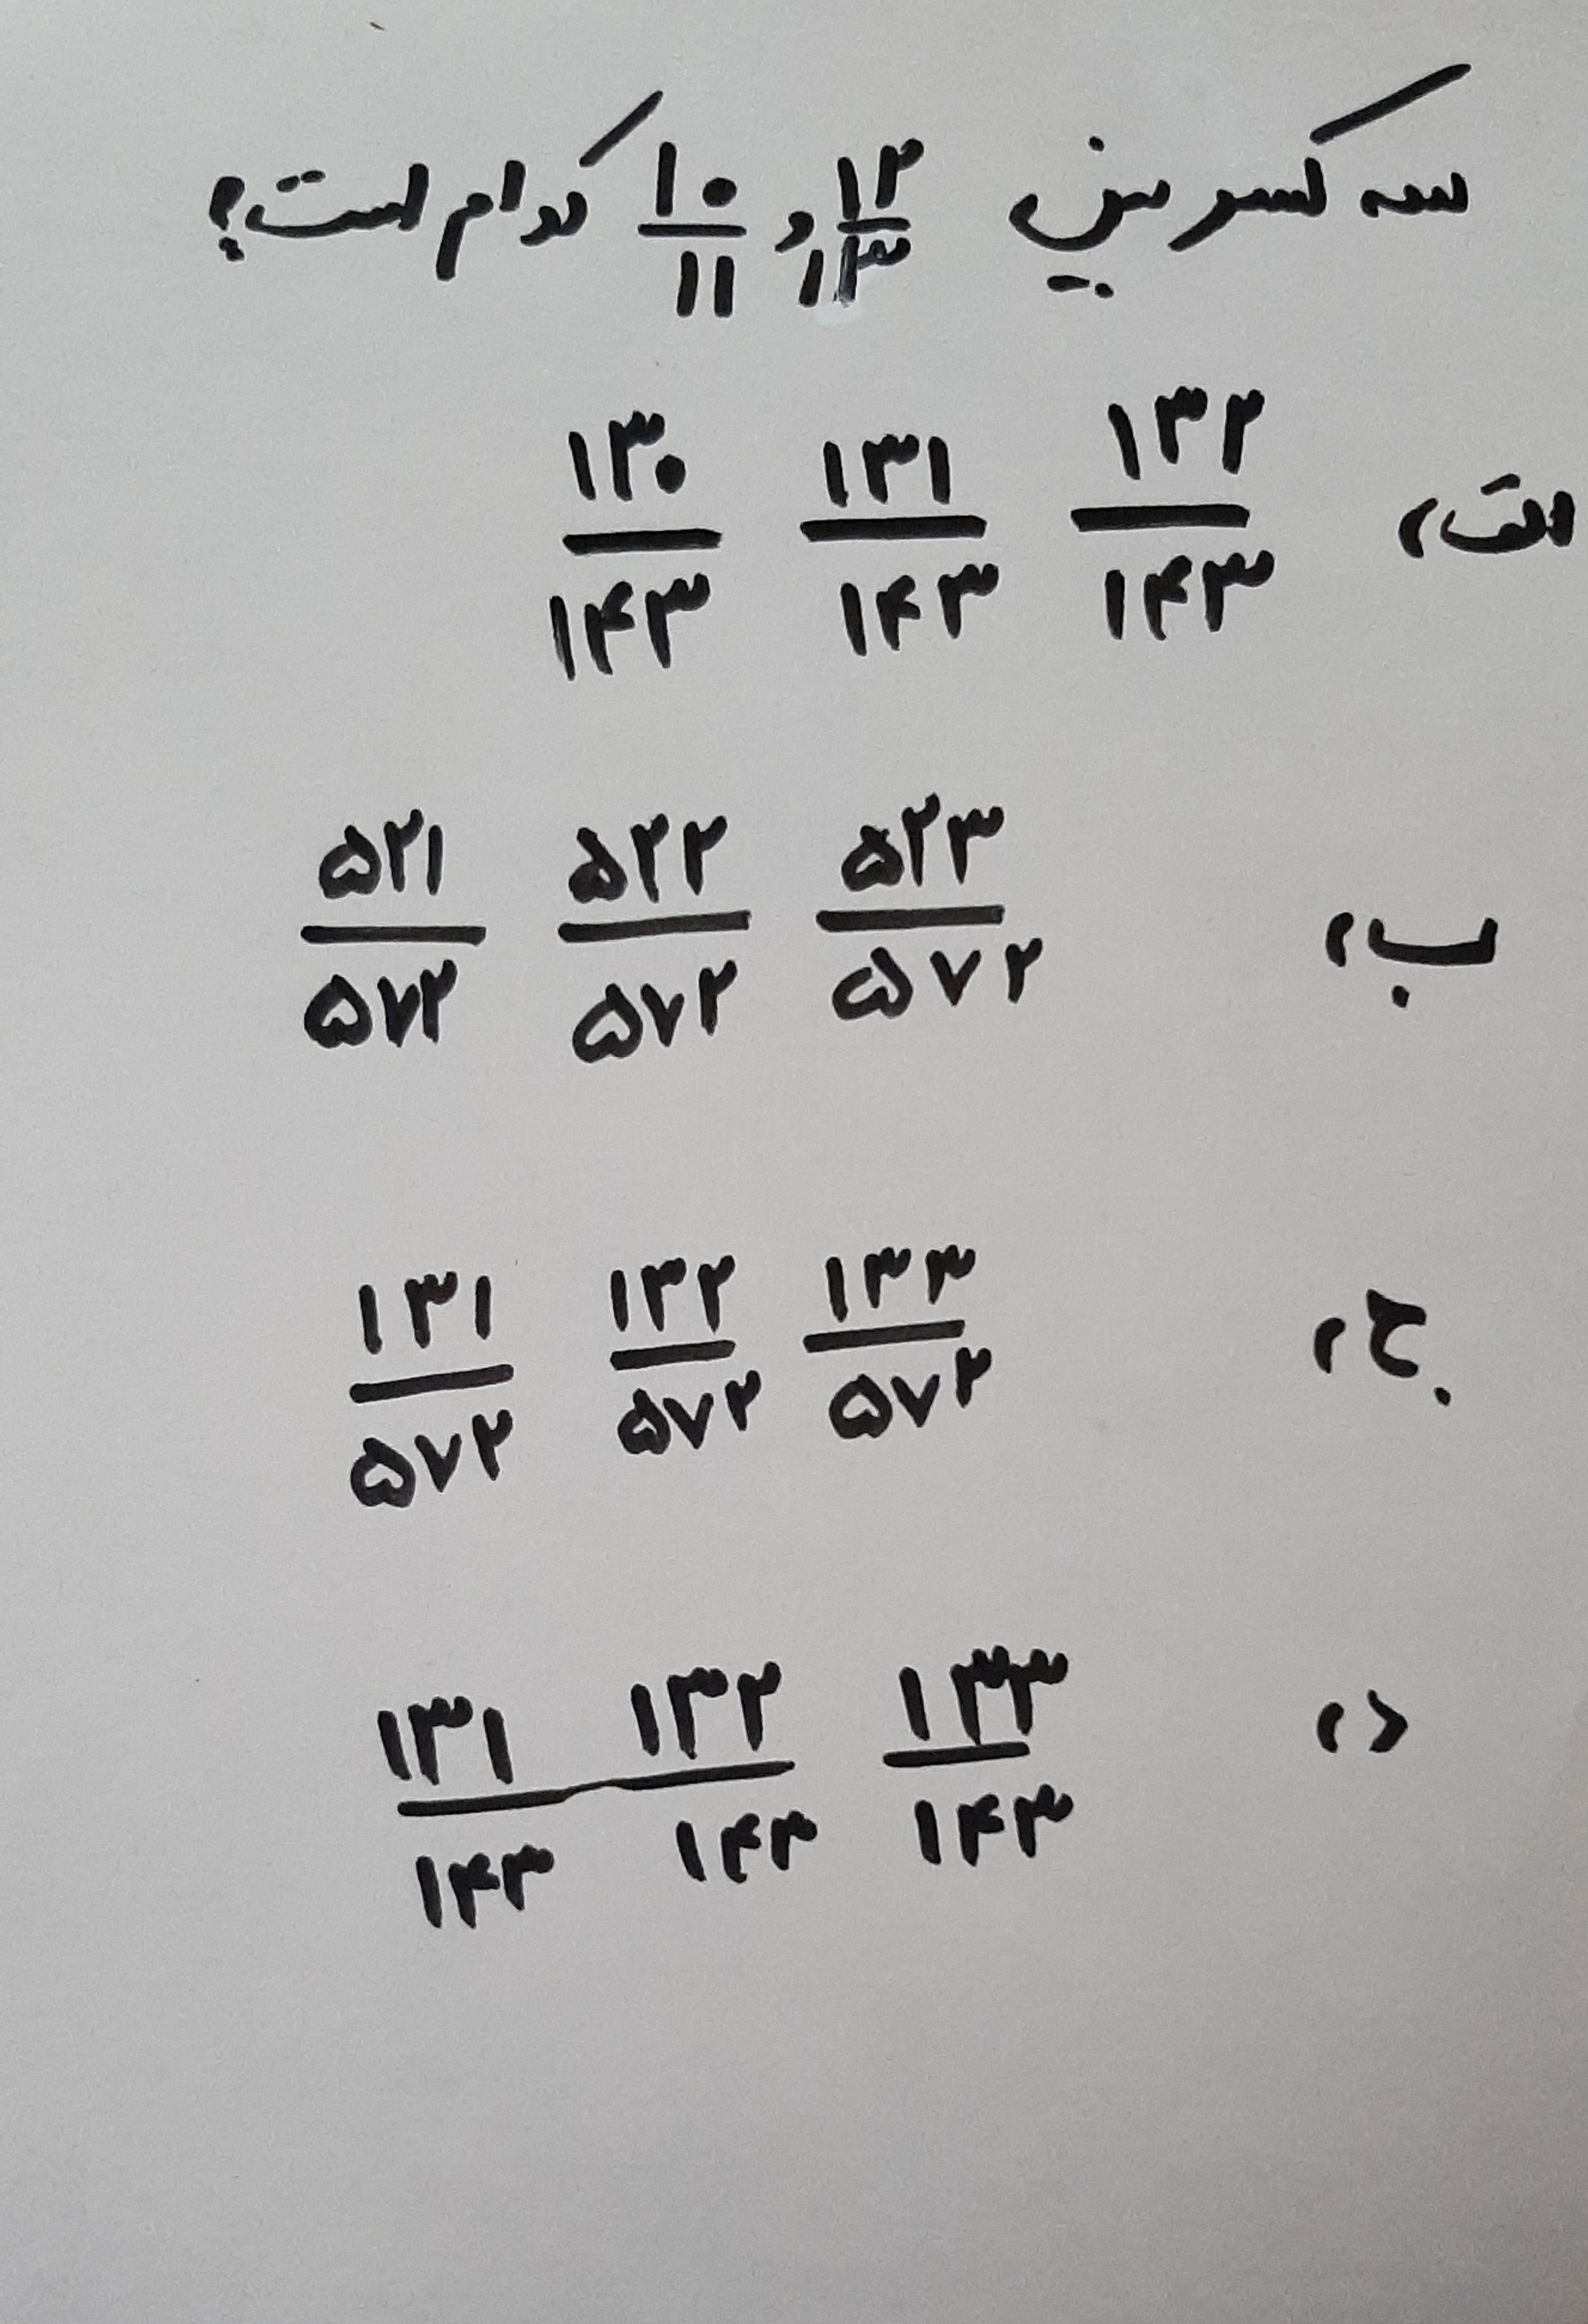 سه کسر بین ۱۲/۱۳ و ۱۰/۱۱ کدام است؟
الف) ۱۳۲/۱۴۳ ۱۳۱/۱۴۳ ۱۳۰/۱۴۳
ب) ۵۲۳/۵۷۲ ۵۲۲/۵۷۲ ۵۲۱/۵۷۲
ج) ۱۳۳/۵۷۲ ۱۳۲/۵۷۲ ۱۳۱/۵۷۲
د) ۱۳۳/۱۴۳ ۱۳۲/۱۴۳ ۱۳۱/۱۴۳